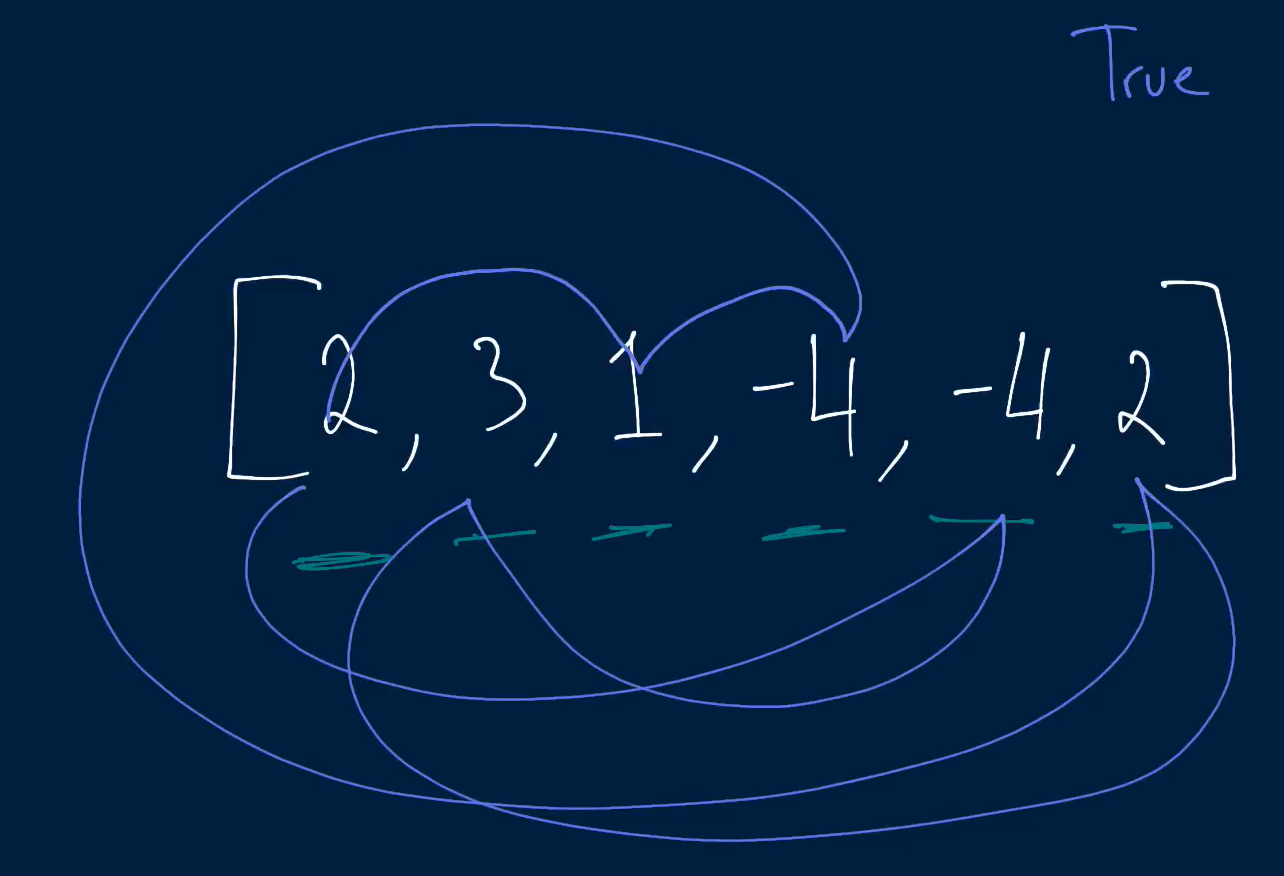 True
[2, 3, 1, -4, -4, 2]